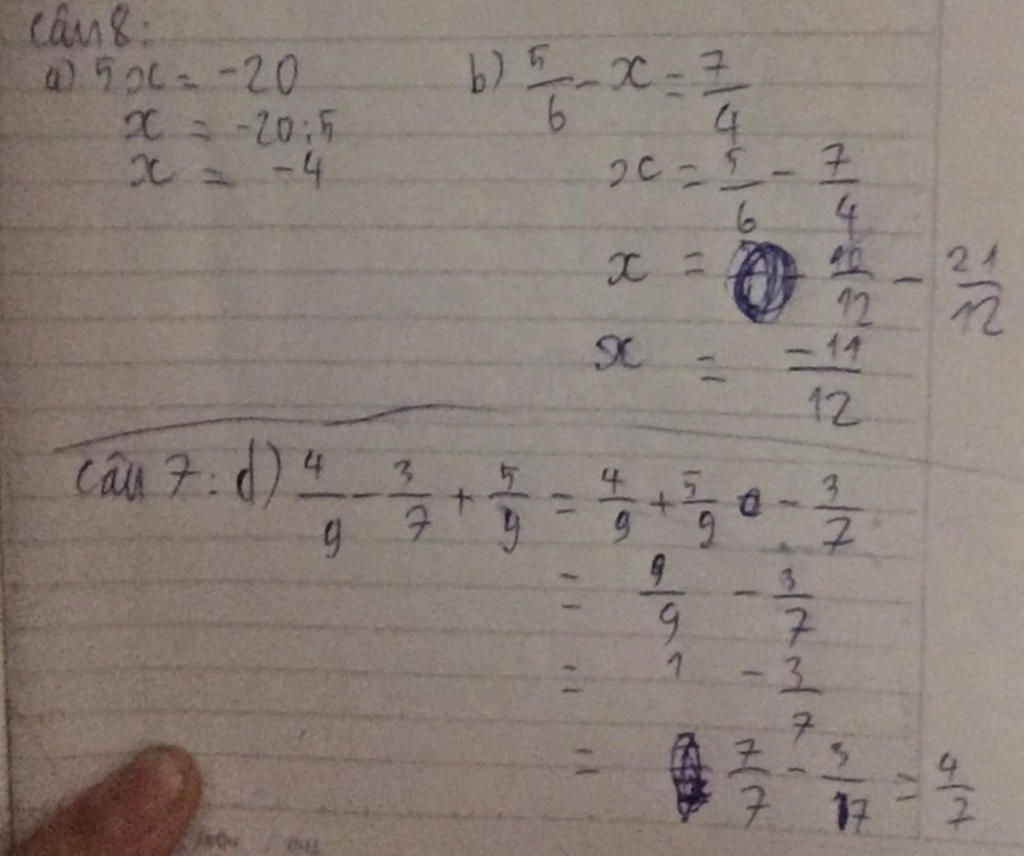 Câu 8:
a) 5x = -20
x = -20:5
x = -4
b) 5/6 - x = 7/4
x = 5/6 - 7/4
x = 10/12 - 21/12
x = -11/12
Câu 7: d) 4/9 - 3/7 + 5/9 = 4/9 + 5/9 - 3/7
= 9/9 - 3/7
= 1 - 3/7
= 7/7 - 3/7 = 4/7